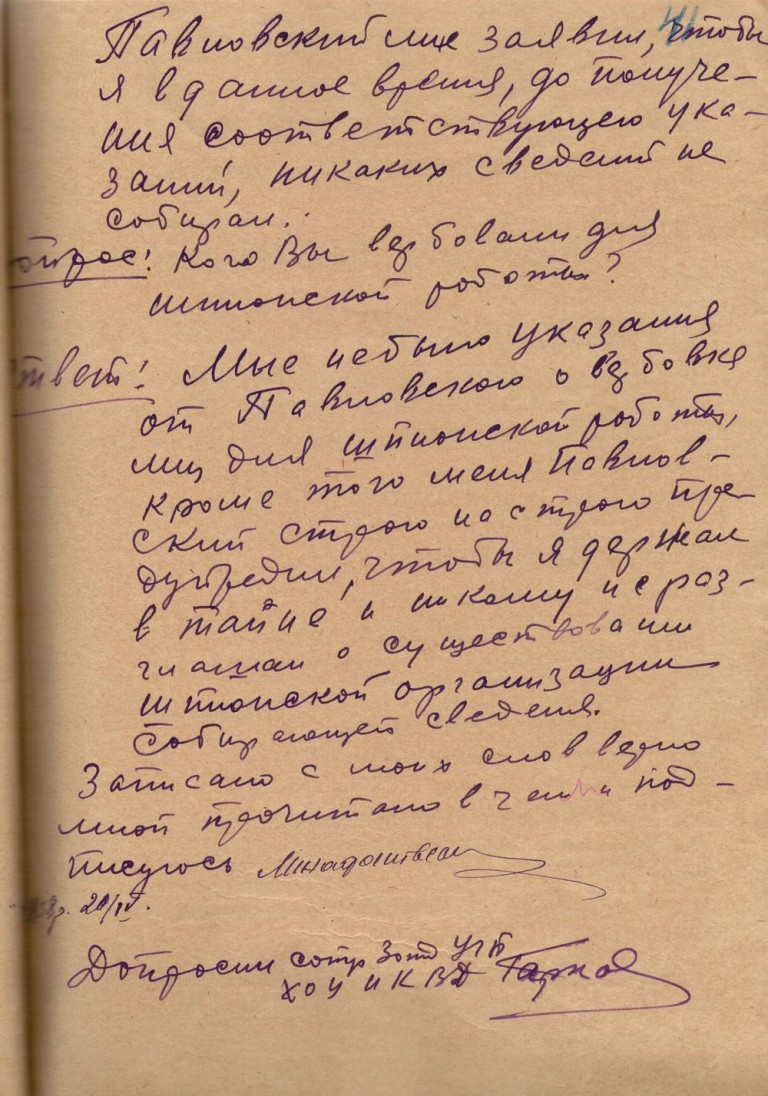 41
Павловский мне заявил, чтобы
я в данное время, до получе-
ния соответствующего ука-
заний, никаких сведений не
собирал.
опрос: Кого Вы вербовали для
шпионской работы?
твет: Мне не было указания
от Павловского о вербовке
лиц для шпионской работы,
кроме того меня Павлов-
ский строго на строго пре-
дупредил, чтобы я держал
в тайне и никому не раз-
глашал о существовании
шпионской организации
собирающей сведения.
Записано с моих слов верно
мной прочитано в чем и под-
писуюсь
1938г. 20/IV.
Допросил сотр 3 отд УГБ
ХОУ НКВД